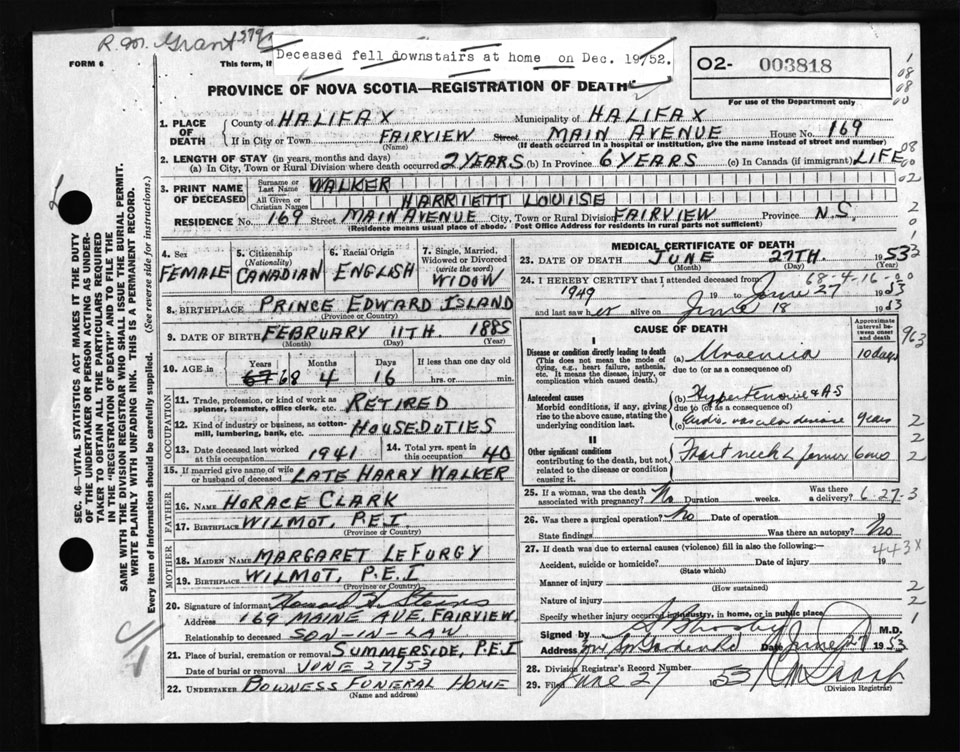 R.M. Grant 579
Deceased fell downstairs at home on Dec. 19/52.
FORM 6
This form, if
02- 003818
For use of the Department only
PROVINCE OF NOVA SCOTIA—REGISTRATION OF DEATH
1. PLACE OF DEATH
County of HALIFAX Municipality of HALIFAX
If in City or Town FAIRVIEW Street MAIN AVENUE House No. 169
(Name) (If death occurred in a hospital or institution, give the name instead of street and number)
2. LENGTH OF STAY (in years, months and days)
(a) In City, Town or Rural Division where death occurred 2 YEARS (b) In Province 6 YEARS (c) In Canada (if immigrant) LIFE
3. PRINT NAME OF DECEASED
Surname or Last Name WALKER
All Given or Christian Names HARRIETT LOUISE
RESIDENCE No. 169 Street MAIN AVENUE City, Town or Rural Division FAIRVIEW Province N.S.
(Residence means usual place of abode. Post Office Address for residents in rural parts not sufficient)
4. Sex FEMALE
5. Citizenship (Nationality) CANADIAN
6. Racial Origin ENGLISH
7. Single, Married, Widowed or Divorced (write the word) WIDOW
8. BIRTHPLACE PRINCE EDWARD ISLAND
(Province or Country)
9. DATE OF BIRTH FEBRUARY 11TH. 1885
(Month) (Day) (Year)
10. AGE in Years 67 68 Months 4 Days 16 If less than one day old
hrs. or min.
OCCUPATION
11. Trade, profession, or kind of work as spinner, teamster, office clerk, etc. RETIRED
12. Kind of industry or business, as cotton-mill, lumbering, bank, etc. HOUSE DUTIES
13. Date deceased last worked at this occupation 1941
14. Total yrs. spent in this occupation 40
15. If married give name of wife or husband of deceased LATE HARRY WALKER
FATHER
16. NAME HORACE CLARK
17. BIRTHPLACE WILMOT, P.E.I.
(Province or Country)
MOTHER
18. MAIDEN NAME MARGARET LEFURGY
19. BIRTHPLACE WILMOT, P.E.I
(Province or Country)
20. Signature of informant
Address 169 MAINE AVE. FAIRVIEW
Relationship to deceased SON-IN-LAW
21. Place of burial, cremation or removal SUMMERSIDE, P.E.I
Date of burial or removal JUNE 27/53
22. UNDERTAKER BOWNESS FUNERAL HOME
(Name and address)
MEDICAL CERTIFICATE OF DEATH
23. DATE OF DEATH JUNE 27TH. 1953
(Month) (Day) (Year)
68-4-16
24. I HEREBY CERTIFY that I attended deceased from
1949 19 to June 27 1953
and last saw her alive on June 18 1953
CAUSE OF DEATH
Approximate interval between onset and death
I
Disease or condition directly leading to death (a) Uraemia 10 days
(This does not mean the mode of dying, e.g., heart failure, asthenia, etc. It means the disease, injury, or complication which caused death.)
due to (or as a consequence of)
Antecedent causes
Morbid conditions, if any, giving rise to the above cause, stating the underlying condition last.
(b) Hypertensive & A S
due to (or as a consequence of)
(c) Cardio-vascular disease years
II
Other significant conditions
contributing to the death, but not related to the disease or condition causing it.
Fract neck L femur 6 mo
25. If a woman, was the death associated with pregnancy? No Duration weeks. Was there a delivery?
6-27-3
26. Was there a surgical operation? No Date of operation 19
State findings Was there an autopsy? No
27. If death was due to external causes (violence) fill in also the following:—
443X
Accident, suicide or homicide? Date of injury 19
(State which)
Manner of injury
(How sustained)
Nature of injury
Specify whether injury occurred in industry, in home, or in public place.
Signed by M.D.
Address Date June 27 1953
28. Division Registrar's Record Number
29. Filed June 27 1953
(Division Registrar)
963
SEC. 46—VITAL STATISTICS ACT MAKES IT THE DUTY
OF THE UNDERTAKER OR PERSON ACTING AS UNDER-
TAKER TO OBTAIN ALL THE PARTICULARS REQUIRED
IN THE "REGISTRATION OF DEATH" AND TO FILE THE
SAME WITH THE DIVISION REGISTRAR WHO SHALL ISSUE THE BURIAL PERMIT.
WRITE PLAINLY WITH UNFADING INK. THIS IS A PERMANENT RECORD.
Every item of information should be carefully supplied. (See reverse side for instructions.)